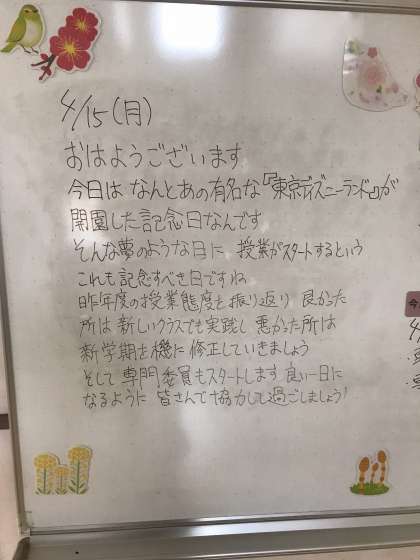 4/15(月)
おはようございます
今日は なんとあの有名な『東京ディズニーランド』が
開園した記念日なんです
そんな夢のような日に 授業がスタートするという
これも記念すべき日ですね
昨年度の授業態度を振り返り 良かった
所は 新しいクラスでも実践し 悪かった所は
新学期を機に 修正していきましょう
そして 専門委員もスタートします 良い一日に
なるように 皆さんで協力して過ごしましょう!
今
4/